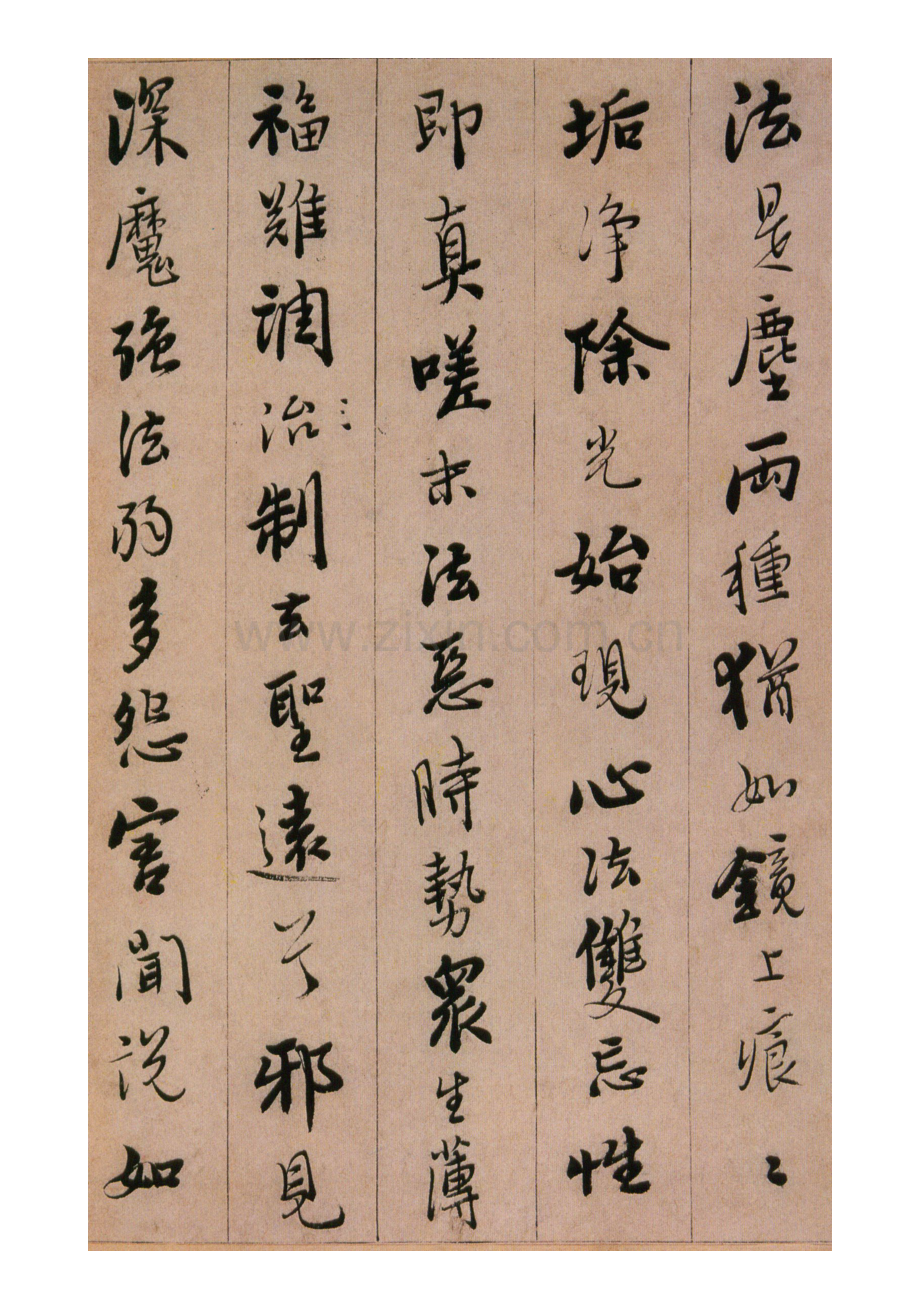 法是塵兩種猶如鏡上痕〻
垢淨除光始現心法雙忘性
即真嗟末法惡時勢眾生薄
福難調治制去聖遠兮邪見
深魔強法弱多怨害聞説如
www.zixin.com.cn